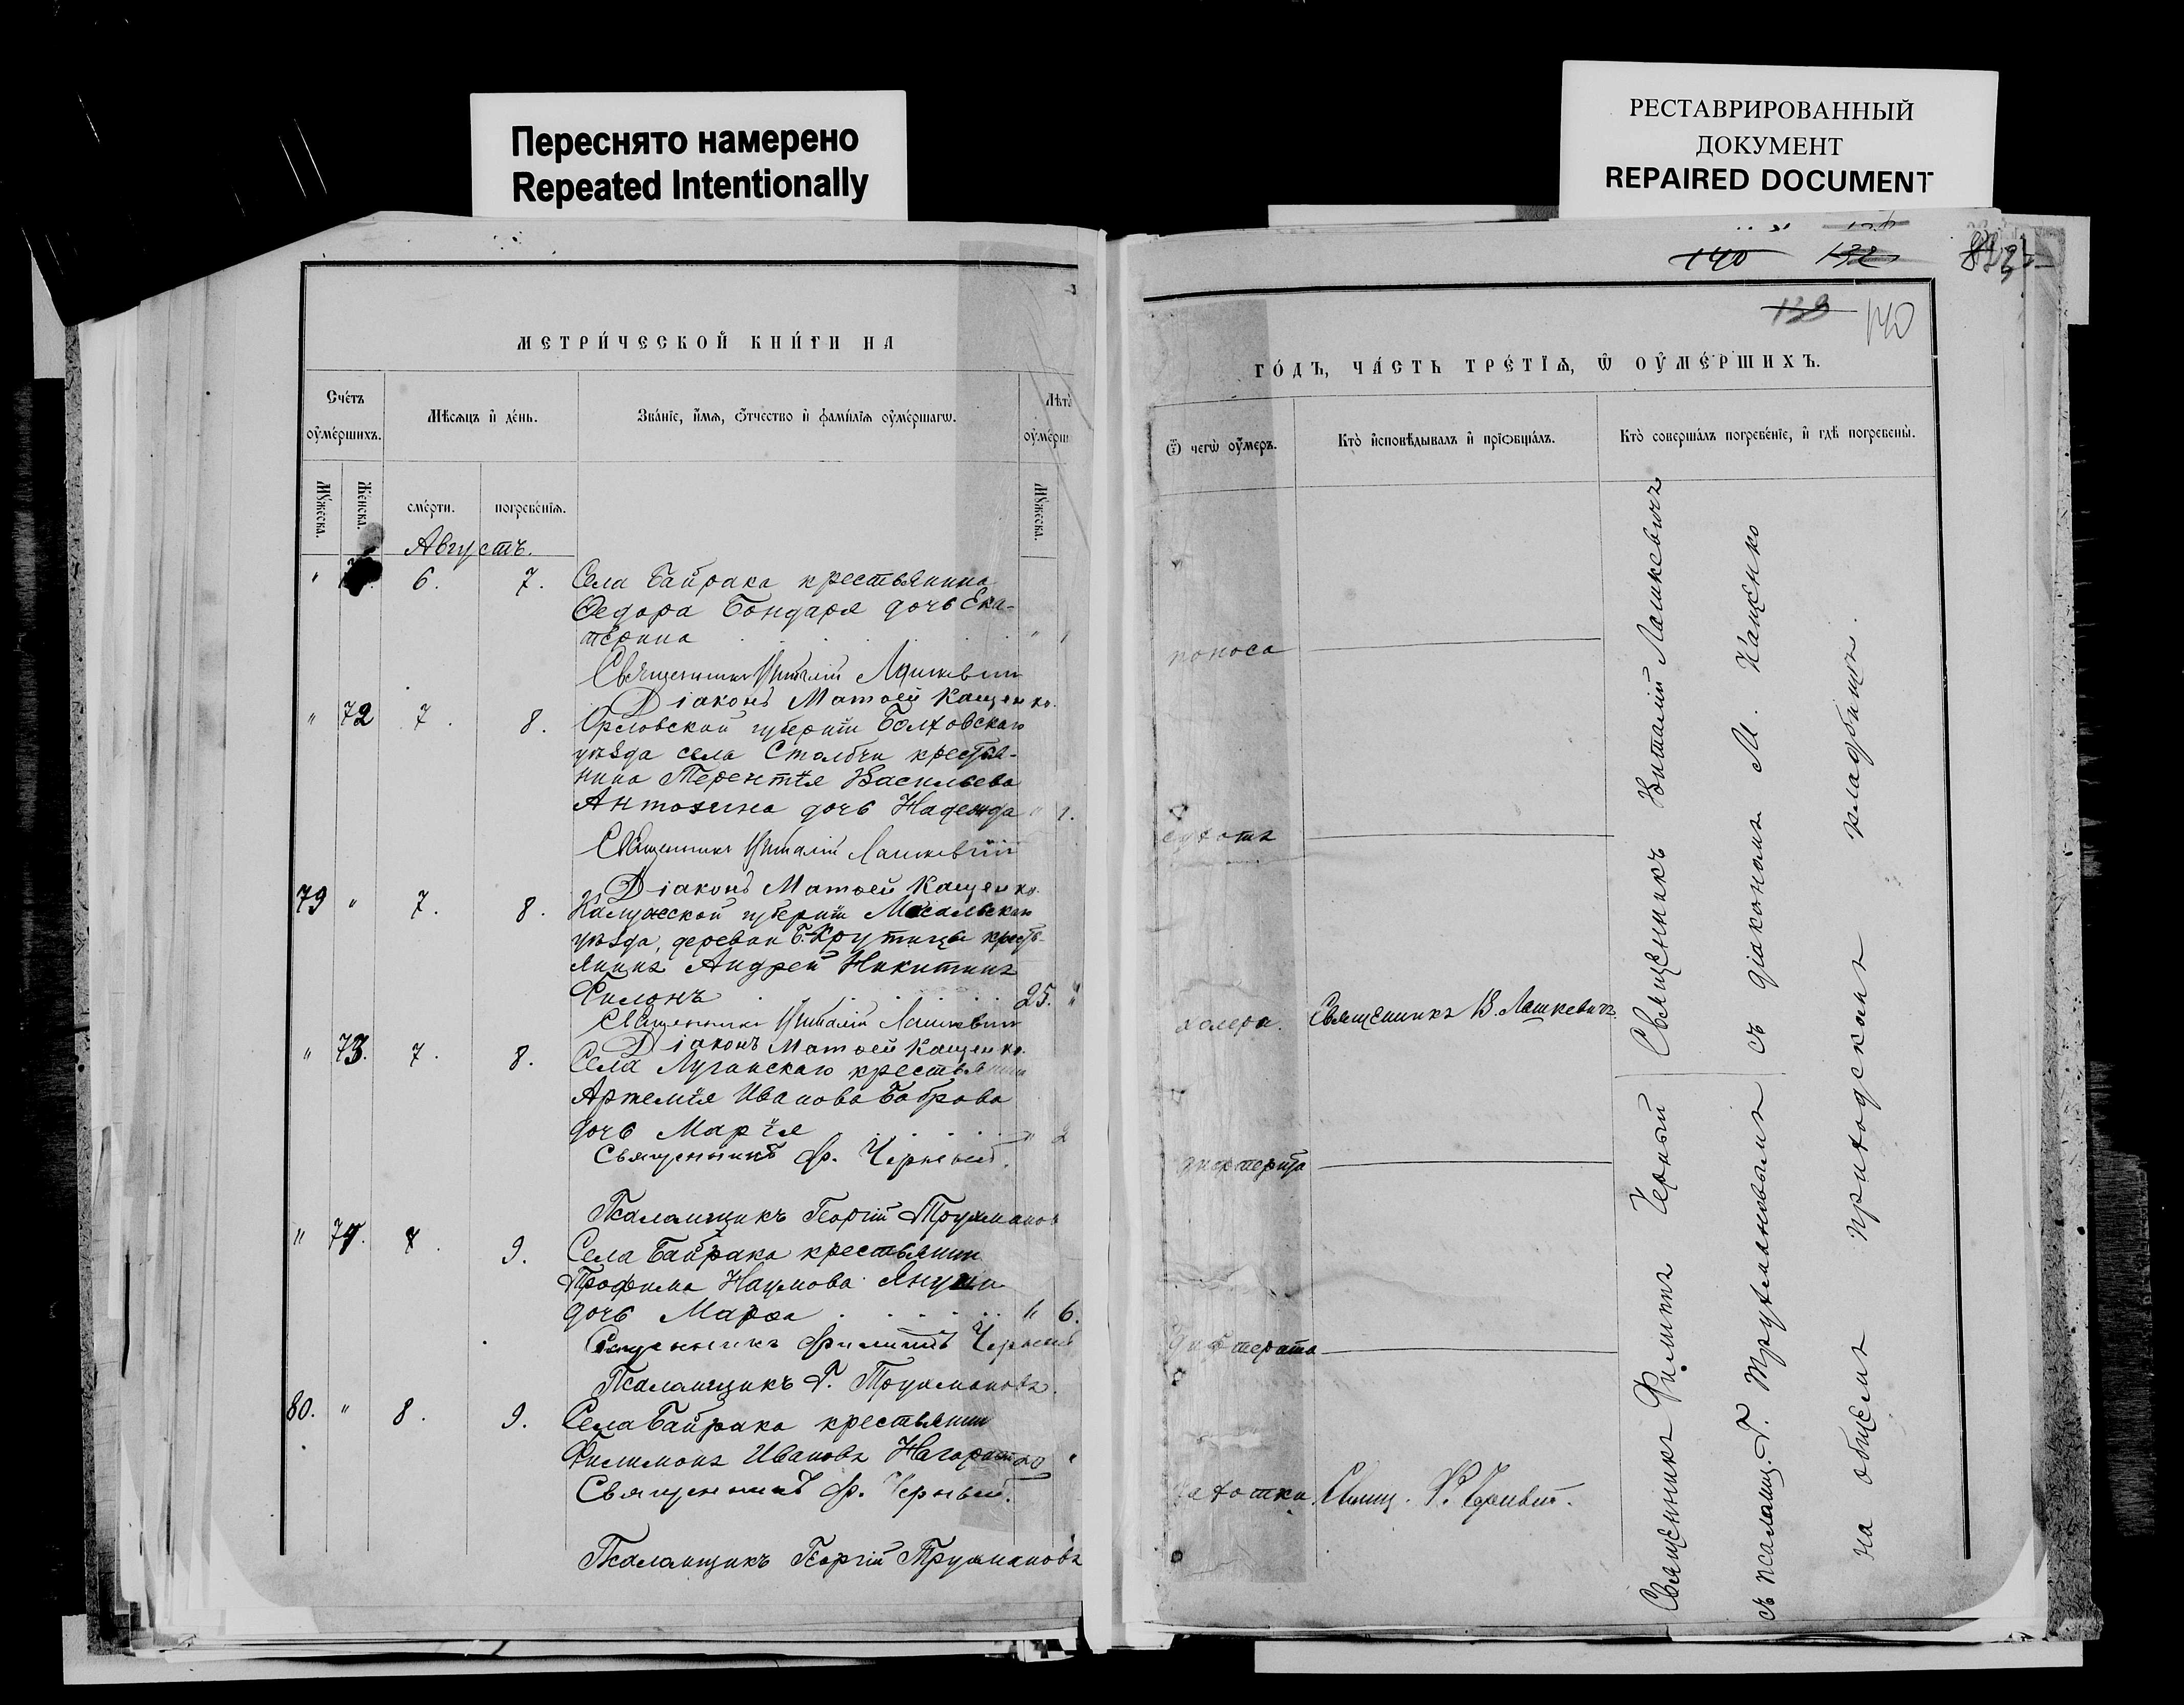 Переснято намерено
Repeated Intentionally
РЕСТАВРИРОВАННЫЙ
ДОКУМЕНТ
REPAIRED DOCUMENT
МЕТРИ́ЧЕСКОЙ КНИ́ГИ НА
Сче́тъ
ᲂу҆ме́ршихъ.
Мѣ́сѧцъ и҆ де́нь.
Зва́нїе, и҆́мѧ, ѻ҆́тчество и҆ фами́лїѧ ᲂу҆ме́ршагѡ.
Лѣта̀
ᲂу҆ме́рш
Мꙋ́жеска.
Же́нска.
сме́рти.
погребе́нїѧ.
Мꙋ́жеска.
Августъ.
" 6. 7. Села Байрака крестьянина
Ѳедора Бондаря дочь Ека-
терина
Священникъ Виталій Лашкевичъ
Діаконъ Матѳей Кащенко.
" 72 7. 8. Орловской губерніи Болховскаго
уѣзда села Столбчи крестья-
нина Терентія Васильева
Антохина дочь Надежда " 1.
Священникъ Виталій Лашкевичъ
Діаконъ Матѳей Кащенко.
79 " 7. 8. Калужской губерніи Мосальскаго
уѣзда, деревни Б. Крутицы кресть-
янинъ Андрей Никитинъ
Филонъ 25. "
Священникъ Виталій Лашкевичъ
Діаконъ Матѳей Кащенко.
" 73. 7. 8. Села Луганскаго крестьянина
Артемія Иванова Боброва
дочь Марія " 2
Священникъ Ф. Черный.
Псаломщикъ Георгій Трухманов
" 74. 8. 9. Села Байрака крестьянина
Трофима Наумова
дочь Марѳа " 6.
Священникъ Филиппъ Черный
Псаломщикъ Г. Трухмановъ.
80. " 8. 9. Села Байрака крестьянин
Филимонъ Ивановъ
Священникъ Ф. Черный.
Псаломщикъ Георгій Трухмановъ
140 132
139 140
ГО́ДЪ, ЧА́СТЬ ТРЕ́ТЇѦ, Ѡ҆ ОУ҆МЕ́РШИХЪ.
Ѿ чегѡ̀ ᲂу҆́меръ.
Кто̀ и҆сповѣ́дывалъ и҆ прїѡбща́лъ.
Кто̀ соверша́лъ погребе́нїе, и҆ гдѣ̀ погребены̀.
поноса
сухотъ
холера. Священникъ В. Лашкевичъ
дифтерита
дифтерита
чахотка Свящ. Ф. Черный.
Священникъ Филиппъ Черный
съ псаломщ. Г. Трухмановымъ
Священникъ Виталій Лашкевичъ
съ діакономъ М. Кащенко
на общемъ приходскомъ кладбищѣ.